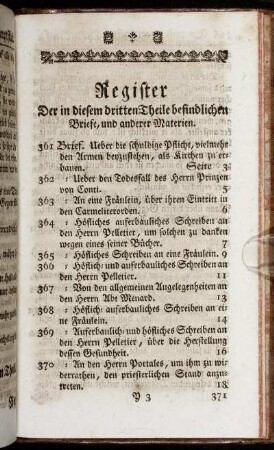 Register
Der in diesem dritten Theile befindlichen
Briefe, und anderer Materien.
361 Brief. Ueber die schuldige Pflicht, vielmehr
den Armen beyzustehen, als Kirchen zu er-
bauen. Seite 3
362 : Ueber den Todesfall des Herrn Prinzen
von Conti. 5
363 : An eine Fräulein, über ihren Eintritt in
den Carmeliterorden. 6
364 : Höfliches auferbäuliches Schreiben an
den Herrn Pelletier, um solchen zu danken
wegen eines seiner Bücher. 7
365 : Höfliches Schreiben an eine Fräulein. 9
366 : Höflich- und auferbauliches Schreiben an
den Herrn Pelletier. 11
367 : Von den allgemeinen Angelegenheiten an
den Herrn Abt Menard. 13
368 : Höflich- auferbauliches Schreiben an ei-
ne Fräulein. 14
369 : Auferbaulich- und höfliches Schreiben an
den Herrn Pelletier, über die Herstellung
dessen Gesundheit. 16
370 : An den Herrn Portales, um ihm zu wi-
derrathen, den priesterlichen Stand anzu-
treten. 18
Y 3 371